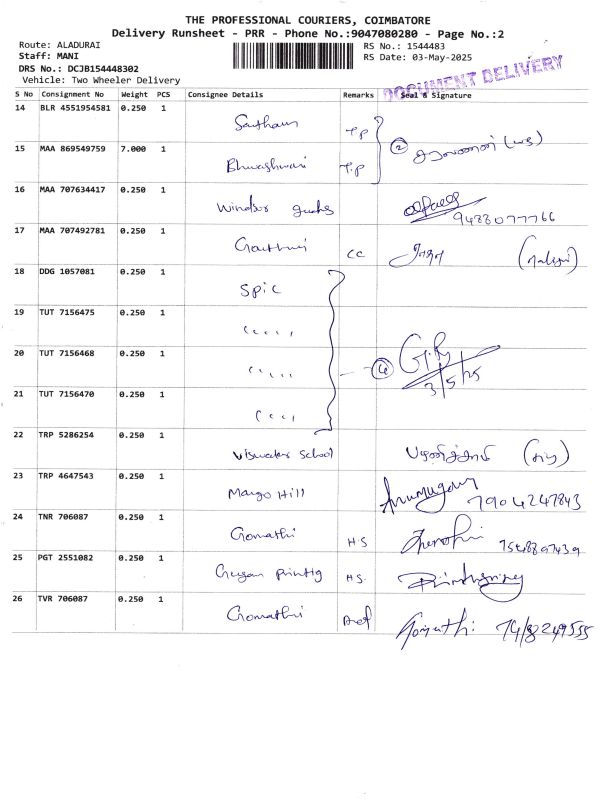 THE PROFESSIONAL COURIERS, COIMBATORE
Delivery Runsheet - PRR - Phone No.:9047080280 - Page No.:2
Route: ALADURAI
Staff: MANI
DRS No.: DCJB154448302
Vehicle: Two Wheeler Delivery
RS No.: 1544483
RS Date: 03-May-2025
DOCUMENT DELIVERY
S No Consignment No Weight PCS Consignee Details Remarks Seal & Signature
14 BLR 4551954581 0.250 1 T.P
15 MAA 869549759 7.000 1 T.P 2
16 MAA 707634417 0.250 1 Windsor 9488077766
17 MAA 707492781 0.250 1 CC
18 DDG 1057081 0.250 1 Spic
19 TUT 7156475 0.250 1 " " " "
20 TUT 7156468 0.250 1 " " " " 4 3/5/25
21 TUT 7156470 0.250 1 " " " "
22 TRP 5286254 0.250 1 School
23 TRP 4647543 0.250 1 Mango Hill Arumugam 7904247843
24 TNR 706087 0.250 1 Gomathi H.S
25 PGT 2551082 0.250 1 H.S.
26 TVR 706087 0.250 1 Gomathi Gomathi